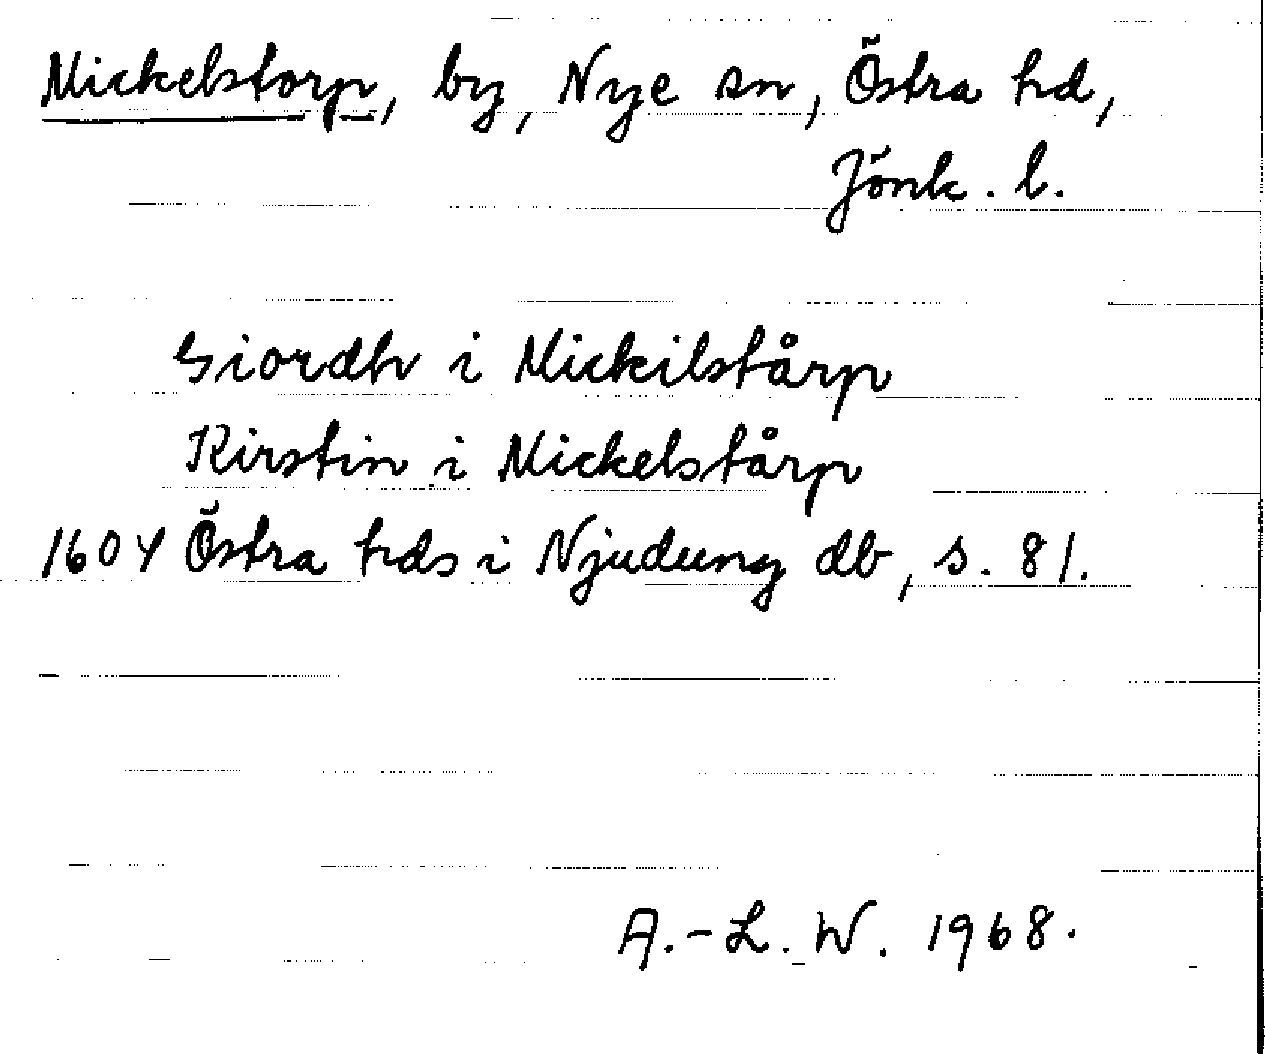 Mickelstorp, by, Nye sn, Östra hd,
Jönk. l.
Giordh i Mickilstårp
Kirstin i Mickelstårp
1604 Östra hds i Njudung db, s. 81.
A.-L. W. 1968.